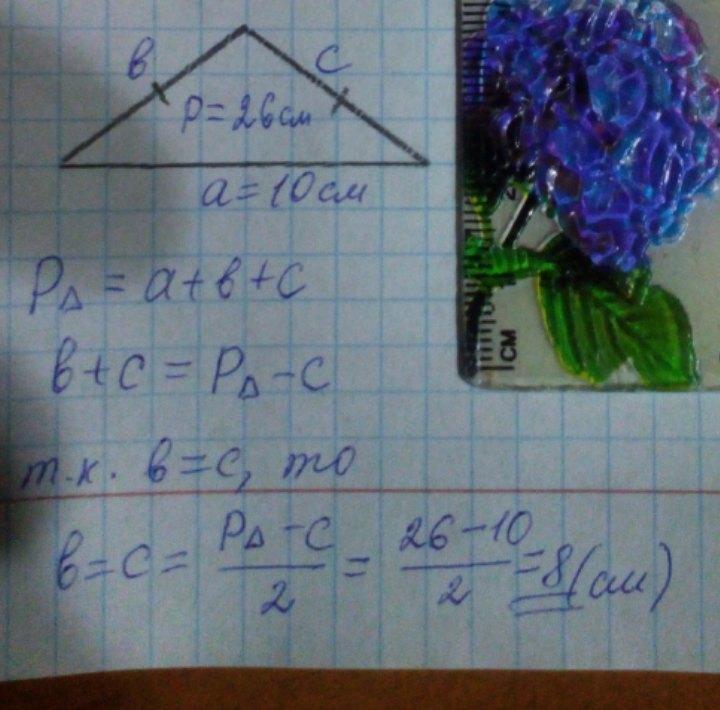 в с
P=26см
a=10см
PΔ = a+в+c
в+c = PΔ-c
т.к. в=c, то
в=c= (PΔ-c)/2 = (26-10)/2 = 8(см)
СМ